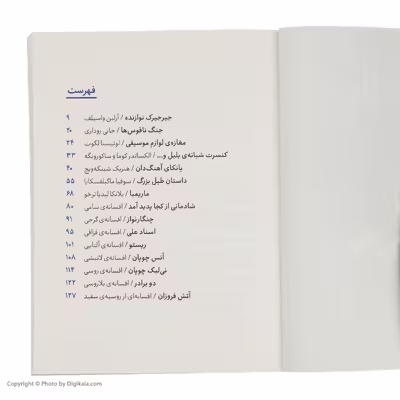 فهرست
جیرجیرک نوازنده / آرلین واسیلف ۹
جنگ ناقوس‌ها / جانی روداری ۲۰
مغازه‌ی لوازم موسیقی / لوئیسا لکوت ۲۴
کنسرت شبانه‌ی بلبل و... / الکساندر کوما و ساکورونگه ۳۳
یانکای آهنگ‌دان / هنریک شینکه‌ویچ ۴۰
داستان طبل بزرگ / سوفیا ماگیلفسکارا ۵۵
ماریمبا / بلانکا لیدیا ترخو ۶۸
شادمانی از کجا پدید آمد / افسانه‌ی سامی ۸۰
چنگ‌نواز / افسانه‌ی گرجی ۹۱
استاد علی / افسانه‌ی قزاقی ۹۵
ریستو / افسانه‌ی آلبانی ۱۰۱
آنس چوپان / افسانه‌ی لاتیشی ۱۰۸
نی‌لبک چوپان / افسانه‌ی روسی ۱۱۴
دو برادر / افسانه‌ی بلاروسی ۱۲۲
آتش فروزان / افسانه‌ای از روسیه‌ی سفید ۱۲۷
Copyright © Photo by Digikala.com